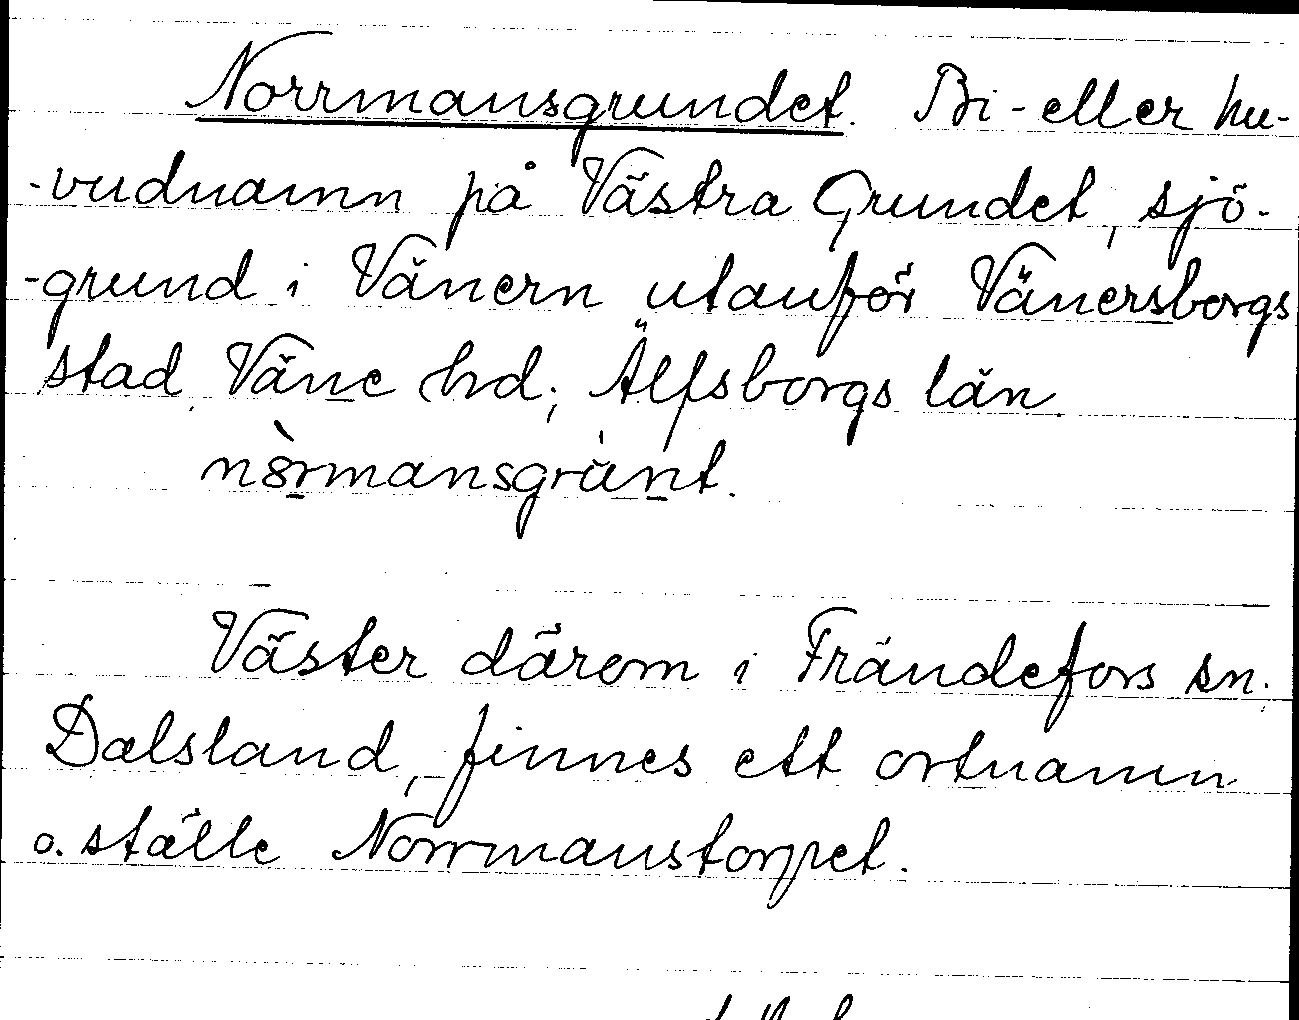 Norrmansgrundet. Bi- eller hu-
-vudnamn på Västra Grundet, sjö-
-grund i Vänern utanför Vänersborgs
stad, Väne hd; Älfsborgs län.
nòrmansgrùnt.
Väster därom i Frändefors sn.
Dalsland, finnes ett ortnamn
o. ställe Norrmanstorpet.